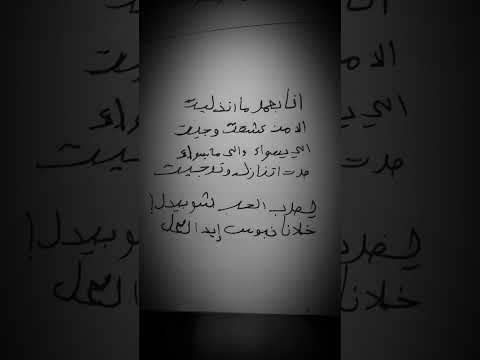 انا بعمر ما انذليت
الا من عشقت وحبيت
الي بيسواء والي ما بيسواء
صرت اتنازله وترجيت
يضرب الحب شو بيذل!
خلانا نبوس إيد الكل